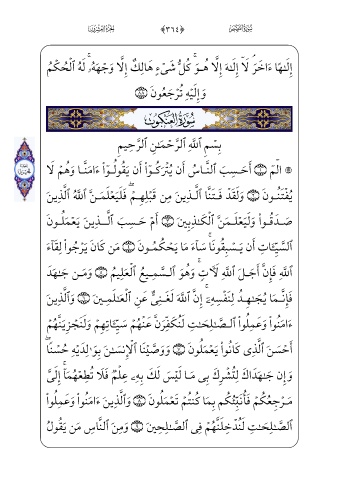 إِلَـٰهًا ءَاخَرَ ۘ لَآ إِلَـٰهَ إِلَّا هُوَ ۚ كُلُّ شَىْءٍ هَالِكٌ إِلَّا وَجْهَهُۥ ۚ لَهُ ٱلْحُكْمُ
وَإِلَيْهِ تُرْجَعُونَ
سُورَةُ العَنكَبُوت
بِسْمِ ٱللَّهِ ٱلرَّحْمَـٰنِ ٱلرَّحِيمِ
۞ الٓمٓ ١ أَحَسِبَ ٱلنَّاسُ أَن يُتْرَكُوٓا۟ أَن يَقُولُوٓا۟ ءَامَنَّا وَهُمْ لَا
يُفْتَنُونَ ٢ وَلَقَدْ فَتَنَّا ٱلَّذِينَ مِن قَبْلِهِمْ ۖ فَلَيَعْلَمَنَّ ٱللَّهُ ٱلَّذِينَ
صَدَقُوا۟ وَلَيَعْلَمَنَّ ٱلْكَـٰذِبِينَ ٣ أَمْ حَسِبَ ٱلَّذِينَ يَعْمَلُونَ
ٱلسَّيِّـَٔاتِ أَن يَسْبِقُونَا ۚ سَآءَ مَا يَحْكُمُونَ ٤ مَن كَانَ يَرْجُوا۟ لِقَآءَ
ٱللَّهِ فَإِنَّ أَجَلَ ٱللَّهِ لَـَٔاتٍ ۚ وَهُوَ ٱلسَّمِيعُ ٱلْعَلِيمُ ٥ وَمَن جَـٰهَدَ
فَإِنَّمَا يُجَـٰهِدُ لِنَفْسِهِۦٓ ۚ إِنَّ ٱللَّهَ لَغَنِىٌّ عَنِ ٱلْعَـٰلَمِينَ ٦ وَٱلَّذِينَ
ءَامَنُوا۟ وَعَمِلُوا۟ ٱلصَّـٰلِحَـٰتِ لَنُكَفِّرَنَّ عَنْهُمْ سَيِّـَٔاتِهِمْ وَلَنَجْزِيَنَّهُمْ
أَحْسَنَ ٱلَّذِى كَانُوا۟ يَعْمَلُونَ ٧ وَوَصَّيْنَا ٱلْإِنسَـٰنَ بِوَٰلِدَيْهِ حُسْنًا ۖ
وَإِن جَـٰهَدَاكَ لِتُشْرِكَ بِى مَا لَيْسَ لَكَ بِهِۦ عِلْمٌ فَلَا تُطِعْهُمَآ ۚ إِلَىَّ
مَرْجِعُكُمْ فَأُنَبِّئُكُم بِمَا كُنتُمْ تَعْمَلُونَ ٨ وَٱلَّذِينَ ءَامَنُوا۟ وَعَمِلُوا۟
ٱلصَّـٰلِحَـٰتِ لَنُدْخِلَنَّهُمْ فِى ٱلصَّـٰلِحِينَ ٩ وَمِنَ ٱلنَّاسِ مَن يَقُولُ